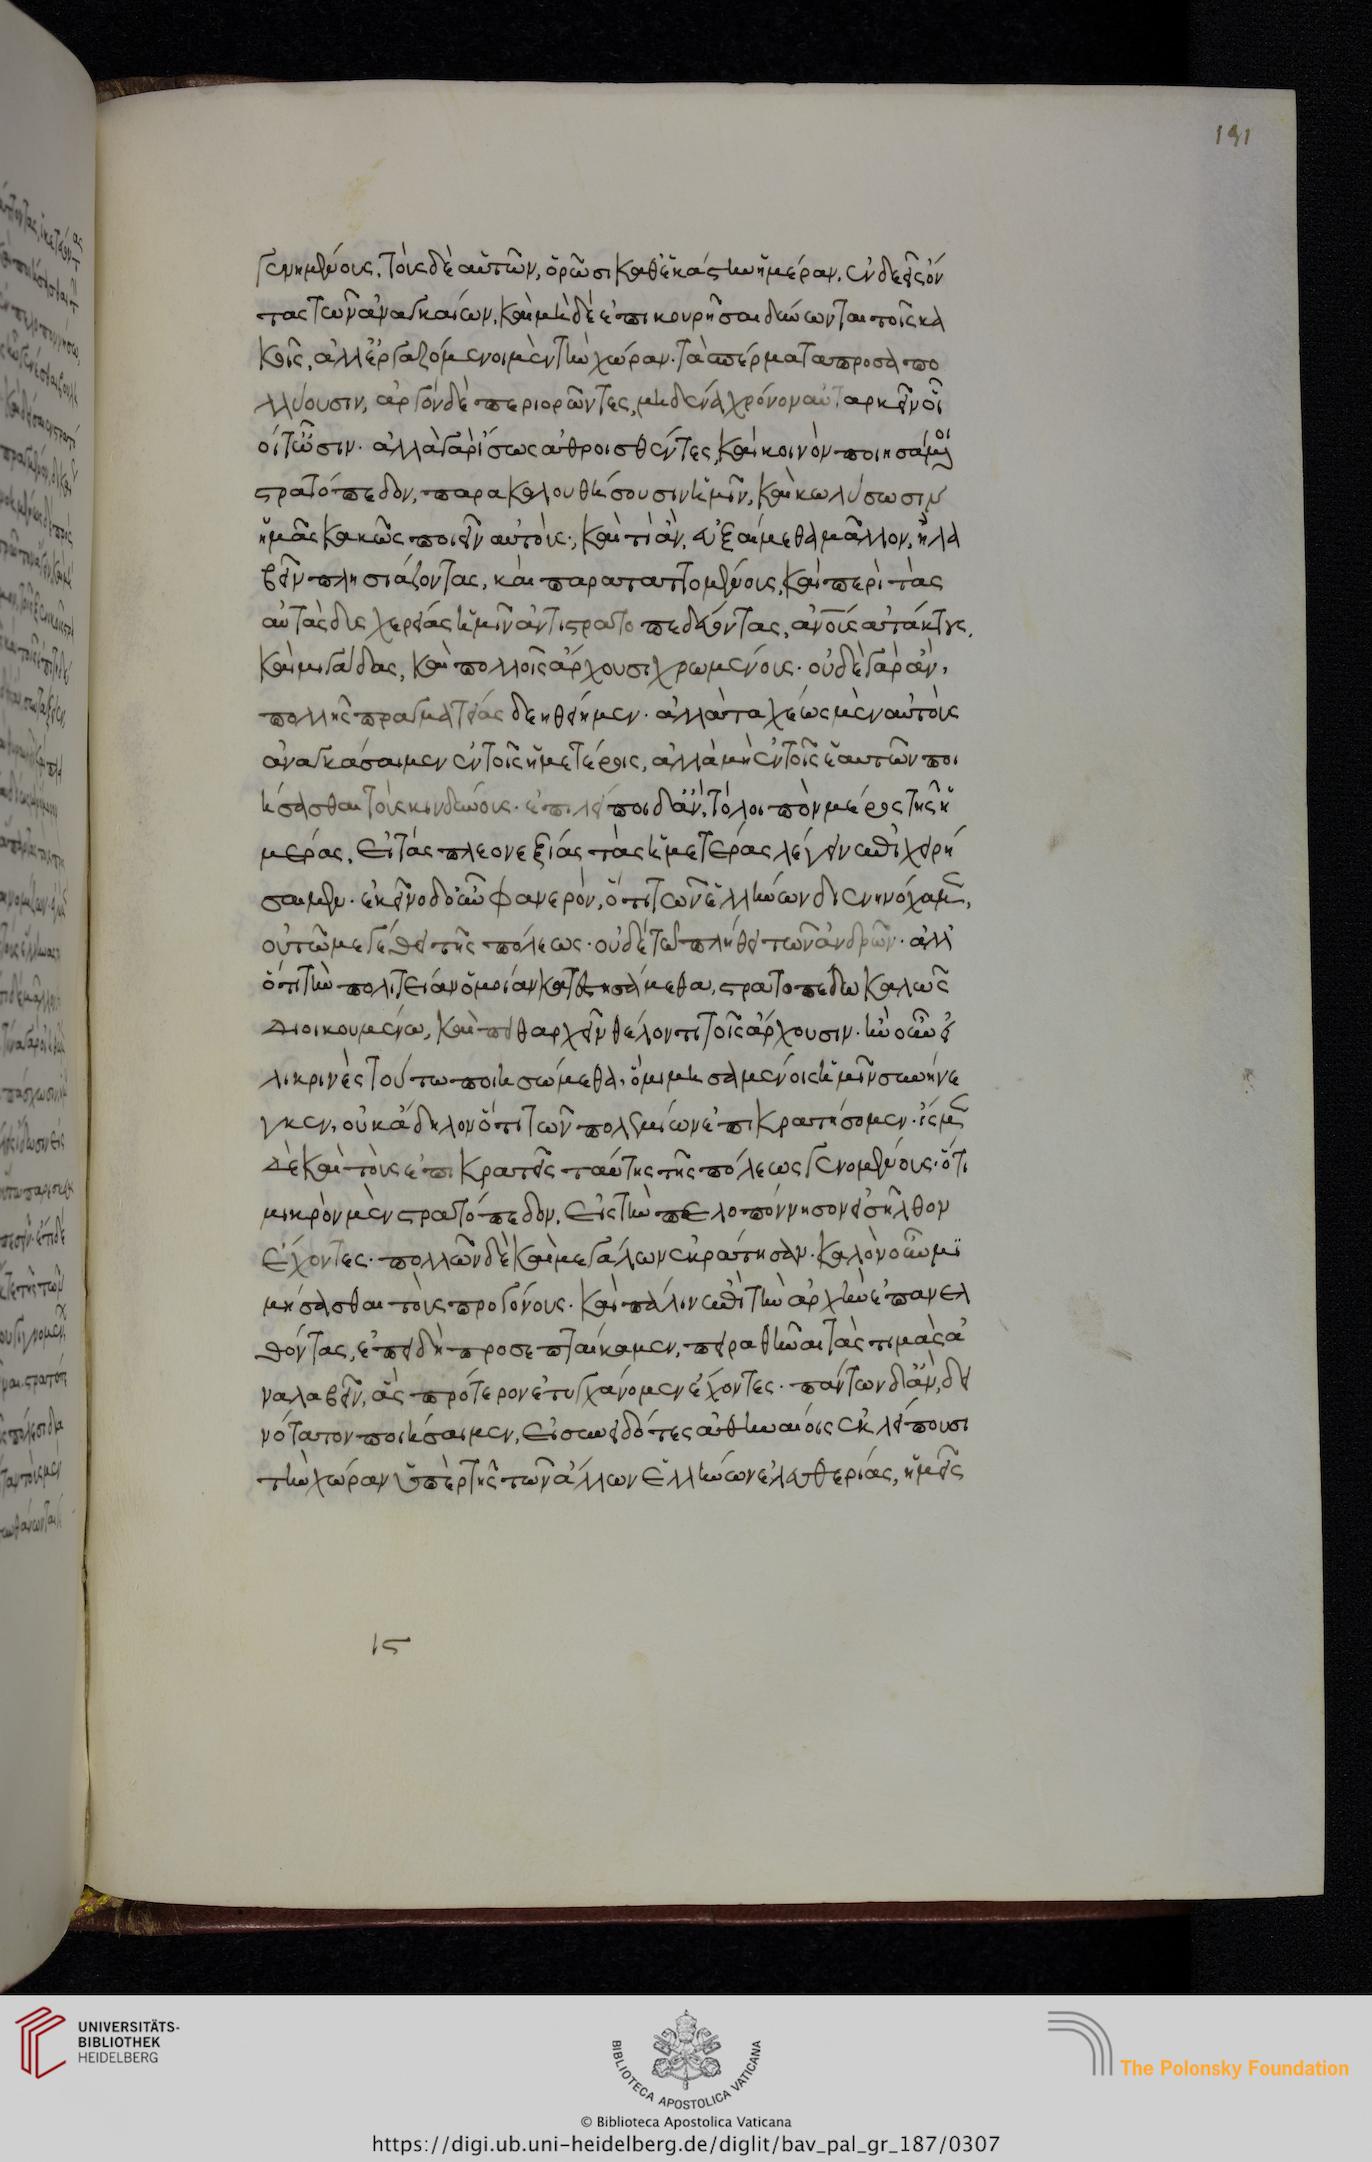 191
γενημένοις, τοὺς δὲ αὑτῶν, ὁρῶσι καθ' ἑκάστην ἡμέραν, ἐνδεεῖς ὄν
τας τῶν ἀναγκαίων, καὶ μηδὲ ἐπικουρῆσαι δύνωνται τοῖς κα
κοῖς, ἀλλ' ἐργαζόμενοι μὲν τὴν χώραν. τὰ σπέρματα προσαπο
λλύουσιν, ἀργὸν δὲ περιορῶντες, μηδένα χρόνον ἀνταρκεῖν οἷοί
οἵ τ' ὦσιν. ἀλλὰ γὰρ ἴσως ἀθροισθέντες, καὶ κοινὸν ποιησάμενοι
στρατόπεδον, παρακολουθήσουσιν ἡμῖν, καὶ κωλύσωσιν
ἡμᾶς κακῶς ποιεῖν αὐτούς. καὶ τί ἂν, εὐξαίμεθα μᾶλλον, ἢ λα
βεῖν πλησιάζοντας, καὶ παραταττομένους, καὶ περὶ τὰς
αὐτὰς δυσχερείας ἡμῖν ἀντιστρατοπεδεύοντας, ἀν οὓς ἀτάκτους,
καὶ μιγάδας, καὶ πολλοῖς ἄρχουσι χρωμένους. οὐδὲ γὰρ ἂν,
πολλῆς πραγματείας δεηθείημεν. ἀλλὰ ταχέως μὲν αὐτοὺς
ἀναγκάσαιμεν ἐν τοῖς ἡμετέροις, ἀλλὰ μὴ ἐν τοῖς ἑαυτῶν ποι
ήσασθαι τοὺς κινδύνους. ἐπιλείποι δ' ἂν, τὸ λοιπὸν μέρος τῆς ἡ
μέρας, εἰ τὰς πλεονεξίας τὰς ἡμετέρας λέγειν ἐπιχειρή
σαιμεν. ἐκεῖνο δ' οὖν φανερὸν, ὅτι τῶν ἑλλήνων διενηνόχαμεν,
οὐ τῶ μεγέθει τῆς πόλεως. οὐδὲ τῶ πλήθει τῶν ἀνδρῶν. ἀλλ'
ὅτι τὴν πολιτείαν ὁμοίαν κατεστησάμεθα, στρατοπέδω καλῶς
διοικουμένω, καὶ πειθαρχεῖν θέλοντι τοῖς ἄρχουσιν. ἢν οὖν εἰ
λικρινὲς τοῦτο ποιησώμεθα, ὃ μιμησαμένοις ἡμῖν συνήνε
γκεν, οὐκ ἄδηλον ὅτι τῶν πολεμίων ἐπικρατήσομεν. ἴσμεν
δὲ καὶ τοὺς ἐπικρατεῖς ταύτης τῆς πόλεως γενομένους. ὅτι
μικρὸν μὲν στρατόπεδον, εἰς τὴν πελοπόννησον εἰσῆλθον
ἔχοντες. πολλῶν δὲ καὶ μεγάλων ἐκράτησαν. καλὸν οὖν μι
μήσασθαι τοὺς προγόνους. καὶ πάλιν ἐπὶ τὴν ἀρχὴν ἐπανελ
θόντας, ἐπειδὴ προσεπταίκαμεν, πειραθῆναι τὰς τιμὰς ἀ
ναλαβεῖν, ἃς πρότερον ἐτυγχάνομεν ἔχοντες. πάντων δ' ἂν, δει
νότατον ποιήσαιμεν, εἰ συνειδότες ἀθηναίοις ἐκλείπουσι
τὴν χώραν ὑπὲρ τῆς τῶν ἄλλων ἑλλήνων ἐλευθερίας, ἡμεῖς
ις
UNIVERSITÄTS-
BIBLIOTHEK
HEIDELBERG
BIBLIOTECA APOSTOLICA VATICANA
The Polonsky Foundation
© Biblioteca Apostolica Vaticana
https://digi.ub.uni-heidelberg.de/diglit/bav_pal_gr_187/0307